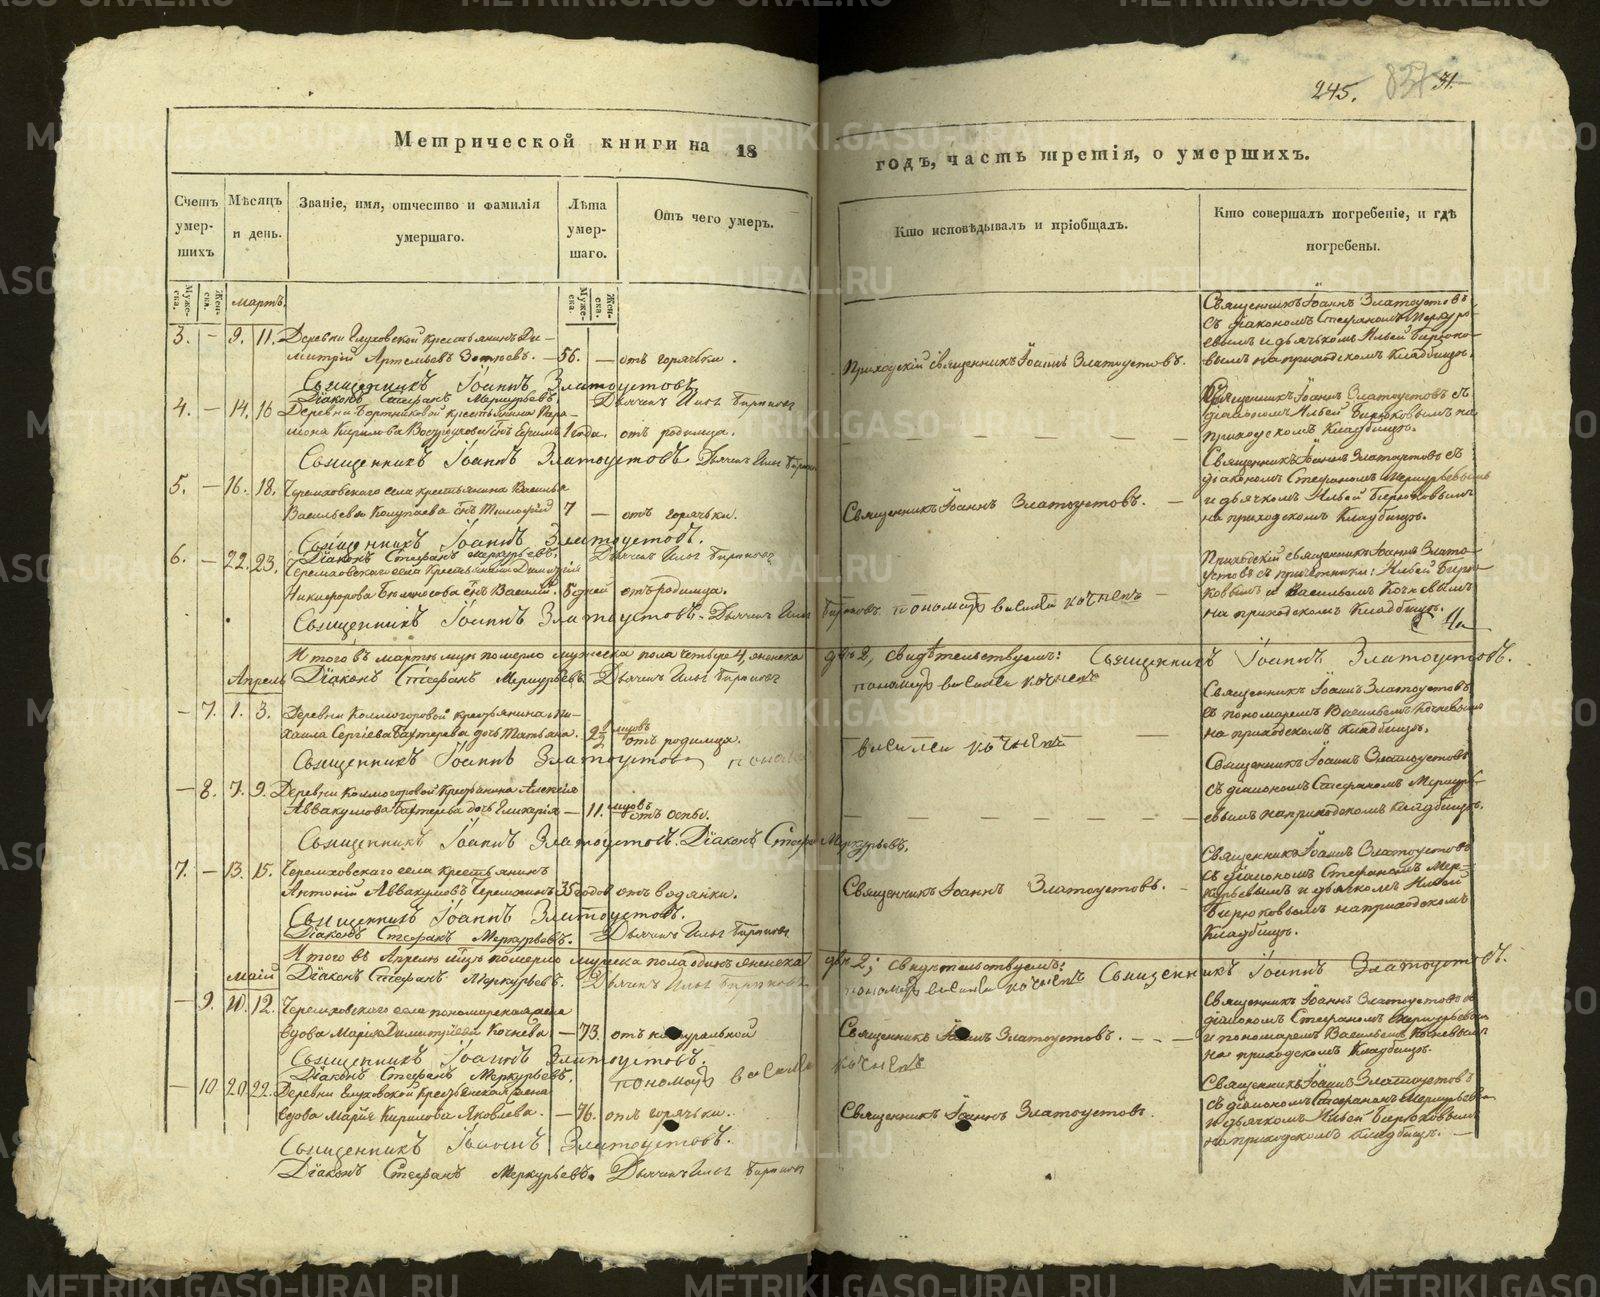 245. 837 31.
Метрической книги на 18
годъ, часть третія, о умершихъ.
Счетъ умер-шихъ
Мѣсяцъ и день.
Званіе, имя, отчество и фамилія умершаго.
Лѣта умер-шаго.
Отъ чего умеръ.
Кто исповѣдывалъ и пріобщалъ.
Кто совершалъ погребеніе, и гдѣ погребены.
Муже-ска.
Жен-ска.
Муже-ска
Жен-ска.
Мартъ.
3. – 9. 11. Деревни Глуховской крестьянинъ Ди-
митрій Артемьевъ – 56. – отъ горячьки.
Приходскій священникъ Іоаннъ Златоустовъ.
Священникъ Іоаннъ Златоустовъ
съ діакономъ Стефаномъ Меркурь-
евымъ и дьячкомъ Ильей Бирюко-
вымъ на приходскомъ Кладбищѣ.
Священникъ Іоаннъ Златоустовъ.
Діаконъ Стефанъ Меркурьевъ. Дьячекъ Илья Бирюковъ
4. – 14. 16 Деревни крестьянина
Кирилова сынъ 1 года. отъ родимца.
Священникъ Іоаннъ Златоустовъ съ
діакономъ Ильей Бирюковымъ на
приходскомъ Кладбищѣ.
Священникъ Іоаннъ Златоустовъ Дьячекъ Илья Бирюковъ
5. – 16. 18. Черемховскаго села крестьянина Василья
Васильева сынъ Тимофей 7 – отъ горячьки.
Священникъ Іоаннъ Златоустовъ. –
Священникъ Іоаннъ Златоустовъ съ
діакономъ Стефаномъ Меркурьевымъ
и дьячкомъ Ильей Бирюковымъ
на приходскомъ Кладбищѣ.
Священникъ Іоаннъ Златоустовъ.
Діаконъ Стефанъ Меркурьевъ. Дьячекъ Илья Бирюковъ
6. – 22. 23. Черемховскаго села крестьянина Димитрія
Никифорова сынъ Василій. 8 дней отъ родимца.
Приходскій священникъ Іоаннъ Злато-
устовъ съ причетники: Ильей Бирю-
ковымъ и Васильемъ Кочневымъ
на приходскомъ Кладбищѣ.
Священникъ Іоаннъ Златоустовъ. Дьячекъ Илья Бирюковъ. пономарь Василей Кочневъ
Итого въ мартѣ мцѣ померло мужеска пола четыре 4, женска два 2, свидѣтельствуемъ: Священникъ Іоаннъ Златоустовъ.
Діаконъ Стефанъ Меркурьевъ Дьячекъ Илья Бирюковъ пономарь Василей Кочневъ
Апрель
– 7. 1. 3. Деревни Колмогоровой крестьянина Ми-
хаила Сергіева Бахтерева дочь Татьяна. 2½ мцовъ отъ родимца.
Священникъ Іоаннъ Златоустовъ
съ пономаремъ Васильемъ Кочневымъ
на приходскомъ Кладбищѣ.
Священникъ Іоаннъ Златоустовъ пономарь Василей Кочневъ
– 8. 7. 9. Деревни Колмогоровой крестьянина Алексія
Аввакумова Бахтерева дочь Гликерія – 11. мцовъ отъ оспы.
Священникъ Іоаннъ Златоустовъ
съ діакономъ Стефаномъ Меркурь-
евымъ на приходскомъ Кладбищѣ.
Священникъ Іоаннъ Златоустовъ. Діаконъ Стефанъ Меркурьевъ.
7. – 13. 15. Черемховскаго села крестьянинъ
Антоній Аввакумовъ Черемхинъ 35 годовъ отъ водянки.
Священникъ Іоаннъ Златоустовъ. –
Священникъ Іоаннъ Златоустовъ
съ діакономъ Стефаномъ Мер-
курьевымъ и дьячкомъ Ильей
Бирюковымъ на приходскомъ
Кладбищѣ.
Священникъ Іоаннъ Златоустовъ.
Діаконъ Стефанъ Меркурьевъ. Дьячекъ Илья Бирюковъ
Итого въ Апрелѣ мцѣ померло мужеска пола одинъ женска двѣ 2; свидѣтельствуемъ: Священникъ Іоаннъ Златоустовъ.
Діаконъ Стефанъ Меркурьевъ. Дьячекъ Илья Бирюковъ пономарь Василей Кочневъ
Маій
– 9. 10. 12. Черемховскаго села пономарская жена
вдова Марія Димитріева Кочнева – 73. отъ натуральной
Священникъ Іоаннъ Златоустовъ. – – –
Священникъ Іоаннъ Златоустовъ съ
діакономъ Стефаномъ Меркурьевымъ
и пономаремъ Васильемъ Кочневымъ
на приходскомъ Кладбищѣ.
Священникъ Іоаннъ Златоустовъ.
Діаконъ Стефанъ Меркурьевъ. пономарь Василей Кочневъ
– 10 20 22. Деревни Глуховской крестьянская жена
вдова Марія Кирилова Яковлева. – 76. отъ горячьки.
Священникъ Іоаннъ Златоустовъ.
Священникъ Іоаннъ Златоустовъ
съ діакономъ Стефаномъ Меркурьевымъ
и дьячкомъ Ильей Бирюковымъ
на приходскомъ Кладбищѣ. –
Священникъ Іоаннъ Златоустовъ.
Діаконъ Стефанъ Меркурьевъ. Дьячекъ Илья Бирюковъ
METRIKI.GASO-URAL.RU